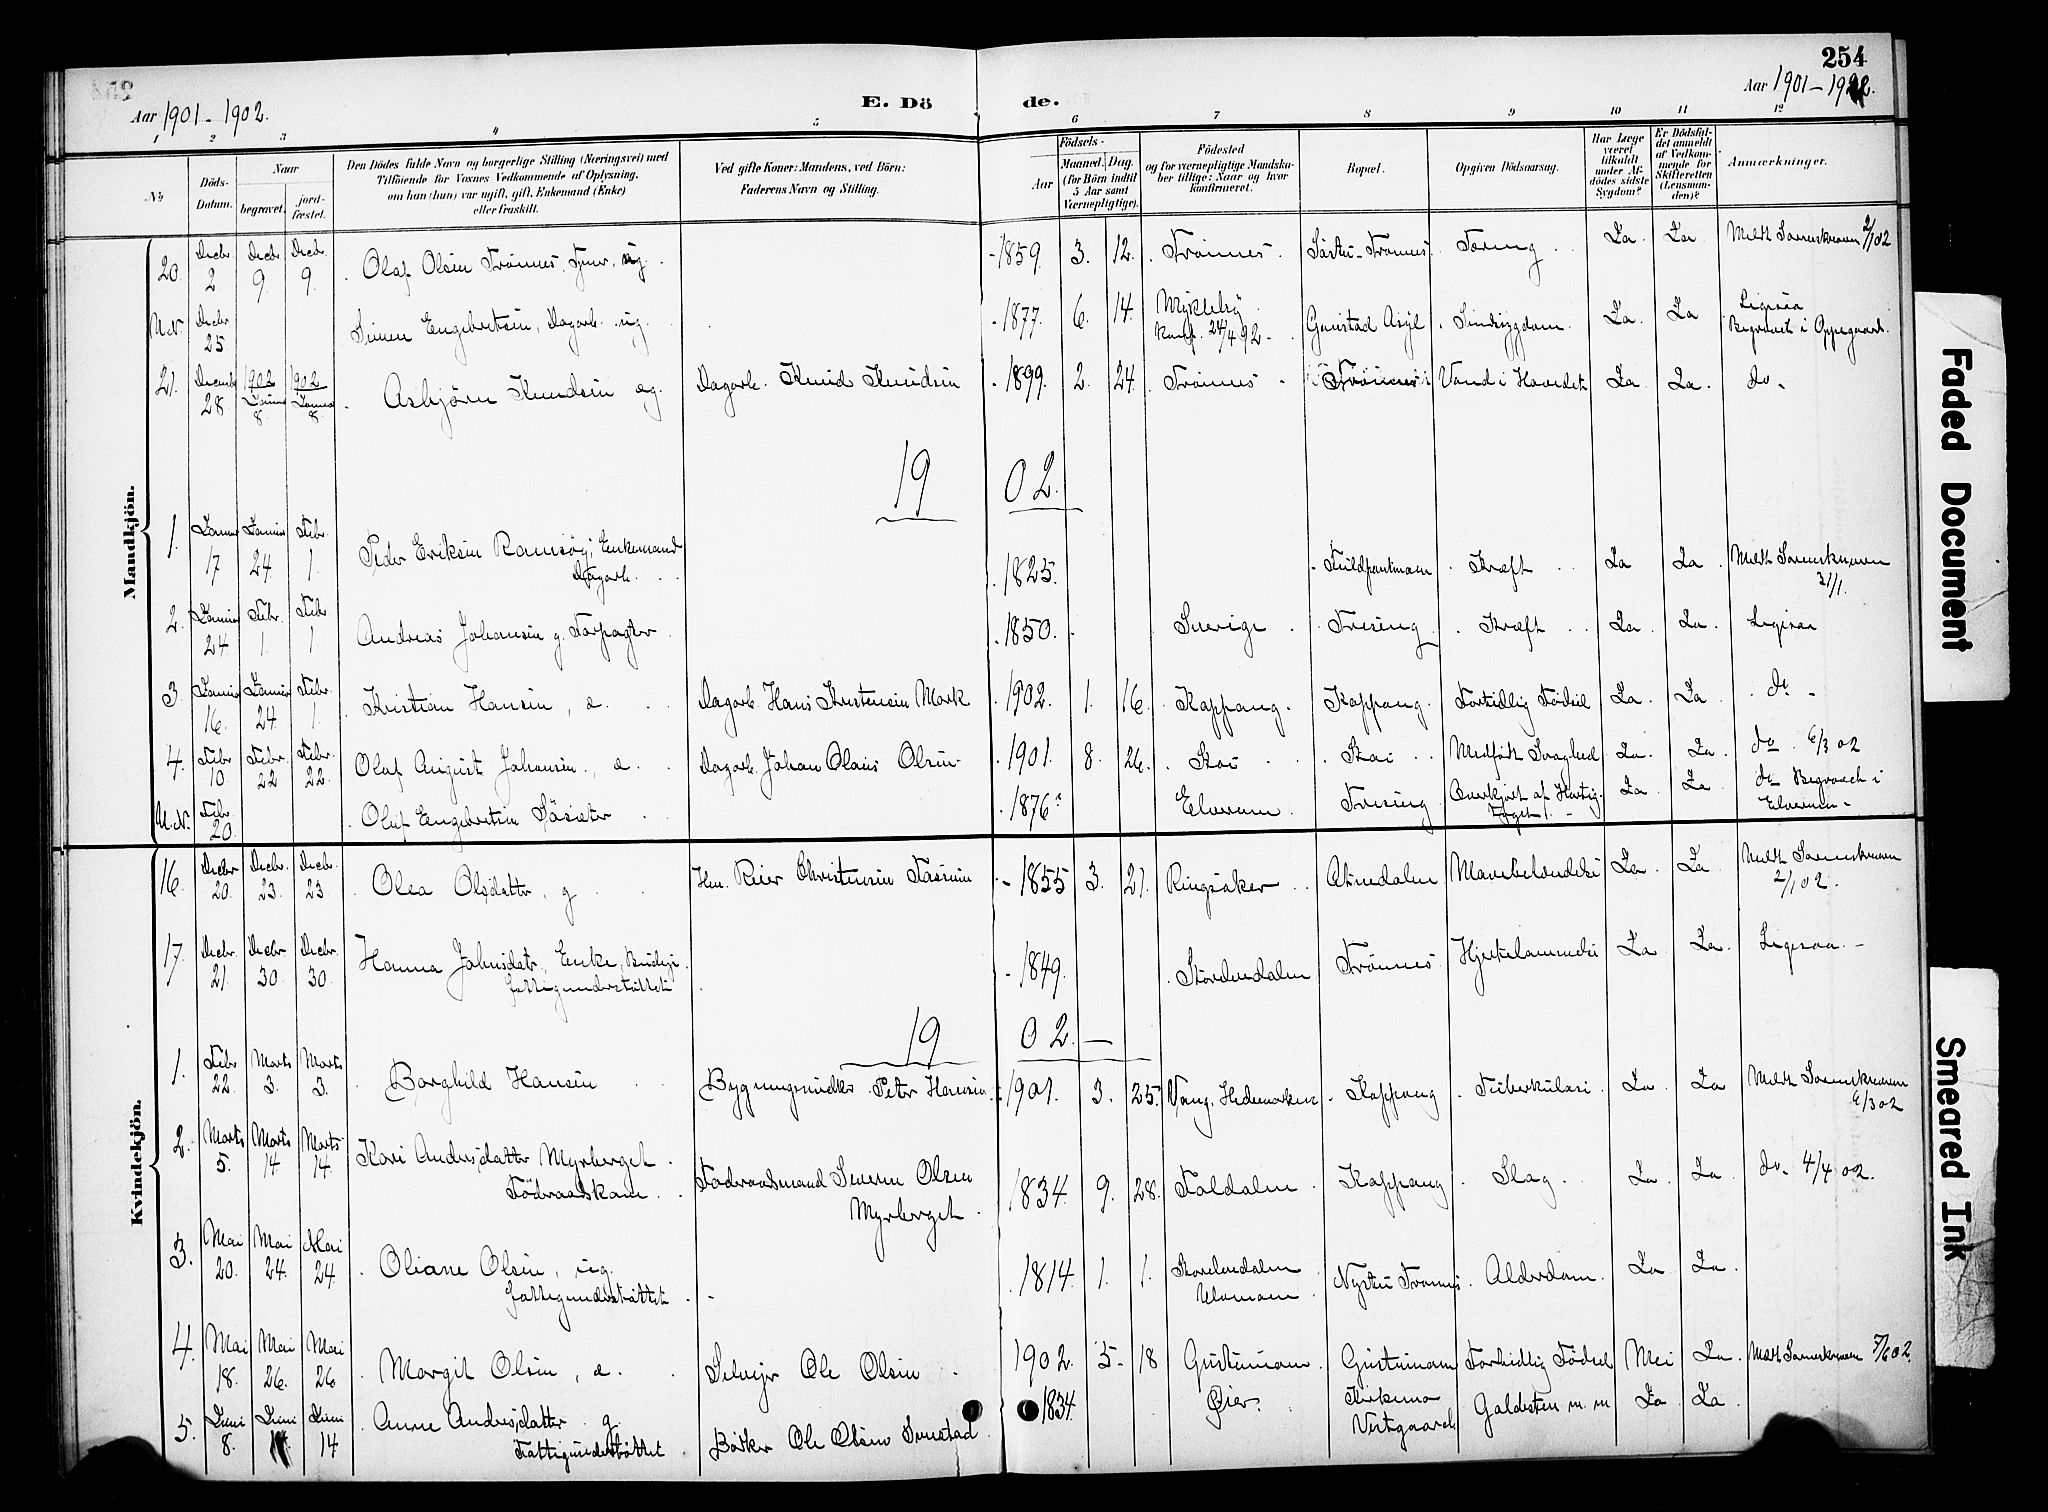 254
Aar 1901-1902. E. Dö de. Aar 1901-1902.
1 2 3 4 5 6 7 8 9 10 11 12
No
Döds-Datum.
Naar
begravet.
jord-fæstet.
Den Dödes fulde Navn og borgerlige Stilling (Næringsvei) med
Tilföiende for Voxnes Vedkommende af Oplysning,
om han (hun) var ugift, gift, Enkemand (Enke)
eller fraskilt.
Ved gifte Koner: Mandens, ved Börn:
Faderens Navn og Stilling.
Födsels-
Aar
Maaned. Dag.
(for Börn indtil
5 Aar samt
Værnepligtige).
Födested
og for værnepligtige Mandska-
ber tillige: Naar og hvor
konfirmeret.
Bopæl.
Opgiven Dödsaarsag.
Har Læge
været
tilkaldt
under Af-
dödes sidste
Sygdom?
Er Dödsfal-
det anmeldt
af Vedkom-
mende for
Skifteretten
(Lensman-
den)?
Anmærkninger.
Mandkjön.
20. Decbr 2. Decbr 9. Decbr 9. Olaf Olsen Trönnes, ug. 1859. 3. 12. Trönnes. Söstu-Trönnes. Tæring Ja. Ja. Meldt Sorenskriveren 2/1 02
U.N. Decbr 25 Simen Engebretsen, Dagarb. ug. 1877. 6. 14. Mykleby Konf. 24/4 92. Gaustad Asyl Sindssygdom. Ja. Ja Ligesaa Begravet i Oppegaard.
21. Decembr 28. 1902 Januar 8. 1902 Januar 8. Asbjörn Knudsen æg. Dagarb. Knud Knudsen 1899. 2. 24. Trönnes Trönnes Vand i Hovedet Ja Ja. do.
19 02.
1. Januar 17 Januar 24. Febr. 1. Peder Eriksen Ramsöy, Enkemand Dagarb. 1825. Kræft Ja Ja. Meldt Sorenskriveren 31/1.
2. Januar 24 Febr. 1. Febr 1. Andreas Johansen g. Forpagter 1850. Sverige Treseng Kræft Ja. Ja. Ligesaa
3. Januar 16. Januar 24. Febr. 1. Kristian Hansen, æ. Dagarb. Hans Kristensen Mork 1902. 1. 16. Koppang. Koppang. Fortidlig Födsel Ja. Ja. do
4. Febr 10 Febr. 22 Febr. 22. Olaf August Johansen, æ. Dagarb. Johan Olaus Olsen 1901. 8. 26. Stai Stai Medfödt Svaghed Ja. Ja. do 6/3 02
U.N. Febr. 20. Olaf Engebretsen Söseter 1876 Elverum. Treseng Overkjört af Hurtig-toget. Ja Ja. do Begravet i Elverum
Kvindekjön.
16. Decbr 20. Decbr. 23. Decbr. 23 Olea Olsdatter, g Hm. Reier Christensen 1855 3. 21. Ringsaker Atnedalen Mavebetændelse Ja Ja. Meldt Sorenskriveren 2/1 02.
17. Decbr. 21. Decbr. 30. Decbr. 30. Hanna Johnsdatr, Enke, Budeje. fattigunderstöttet 1849. Storelvedalen Trönnes Hjertelammelse Ja Ja. Ligesaa.
19 02.
1. Febr 22. Marts 3. Marts 3. Borghild Hansen Bygningssnedker Peter Hansen 1901. 3. 25. Vang. Hedemarken Koppang Tuberkulose. Ja Ja Meldt Sorenskriveren 6/3 02
2. Marts 5. Marts 14 Marts 14. Kari Andersdatter Myrberget Födraadskone Födraadsmand Simen Olsen Myrberget 1834. 9. 28. Foldalen Koppang Slag Ja Ja. do. 4/4 02.
3. Mai 20. Mai 24. Mai 24 Oliane Olsen, ug. fattigunderstöttet 1814. 1. 1. Storelvedalen Nystu Trönnes Alderdom. Ja Ja.
4. Mai 18. Mai 26. Mai 26 Margit Olsen, æ. Selvejer Ole Olsen 1902. 5. 18 Gustumoen. Gustumoen Fortidlig Födsel Nei Ja. Meldt Sorenskriveren 7/6 02.
5. Juni 8. Juni 14. Juni 14 Anne Andersdatter g. Fattigunderstöttet Bödker Ole Olsen 1834. Öier. Kirkemo Vestgaard Galdesten m.m Ja Ja.
Faded Document
Smeared Ink